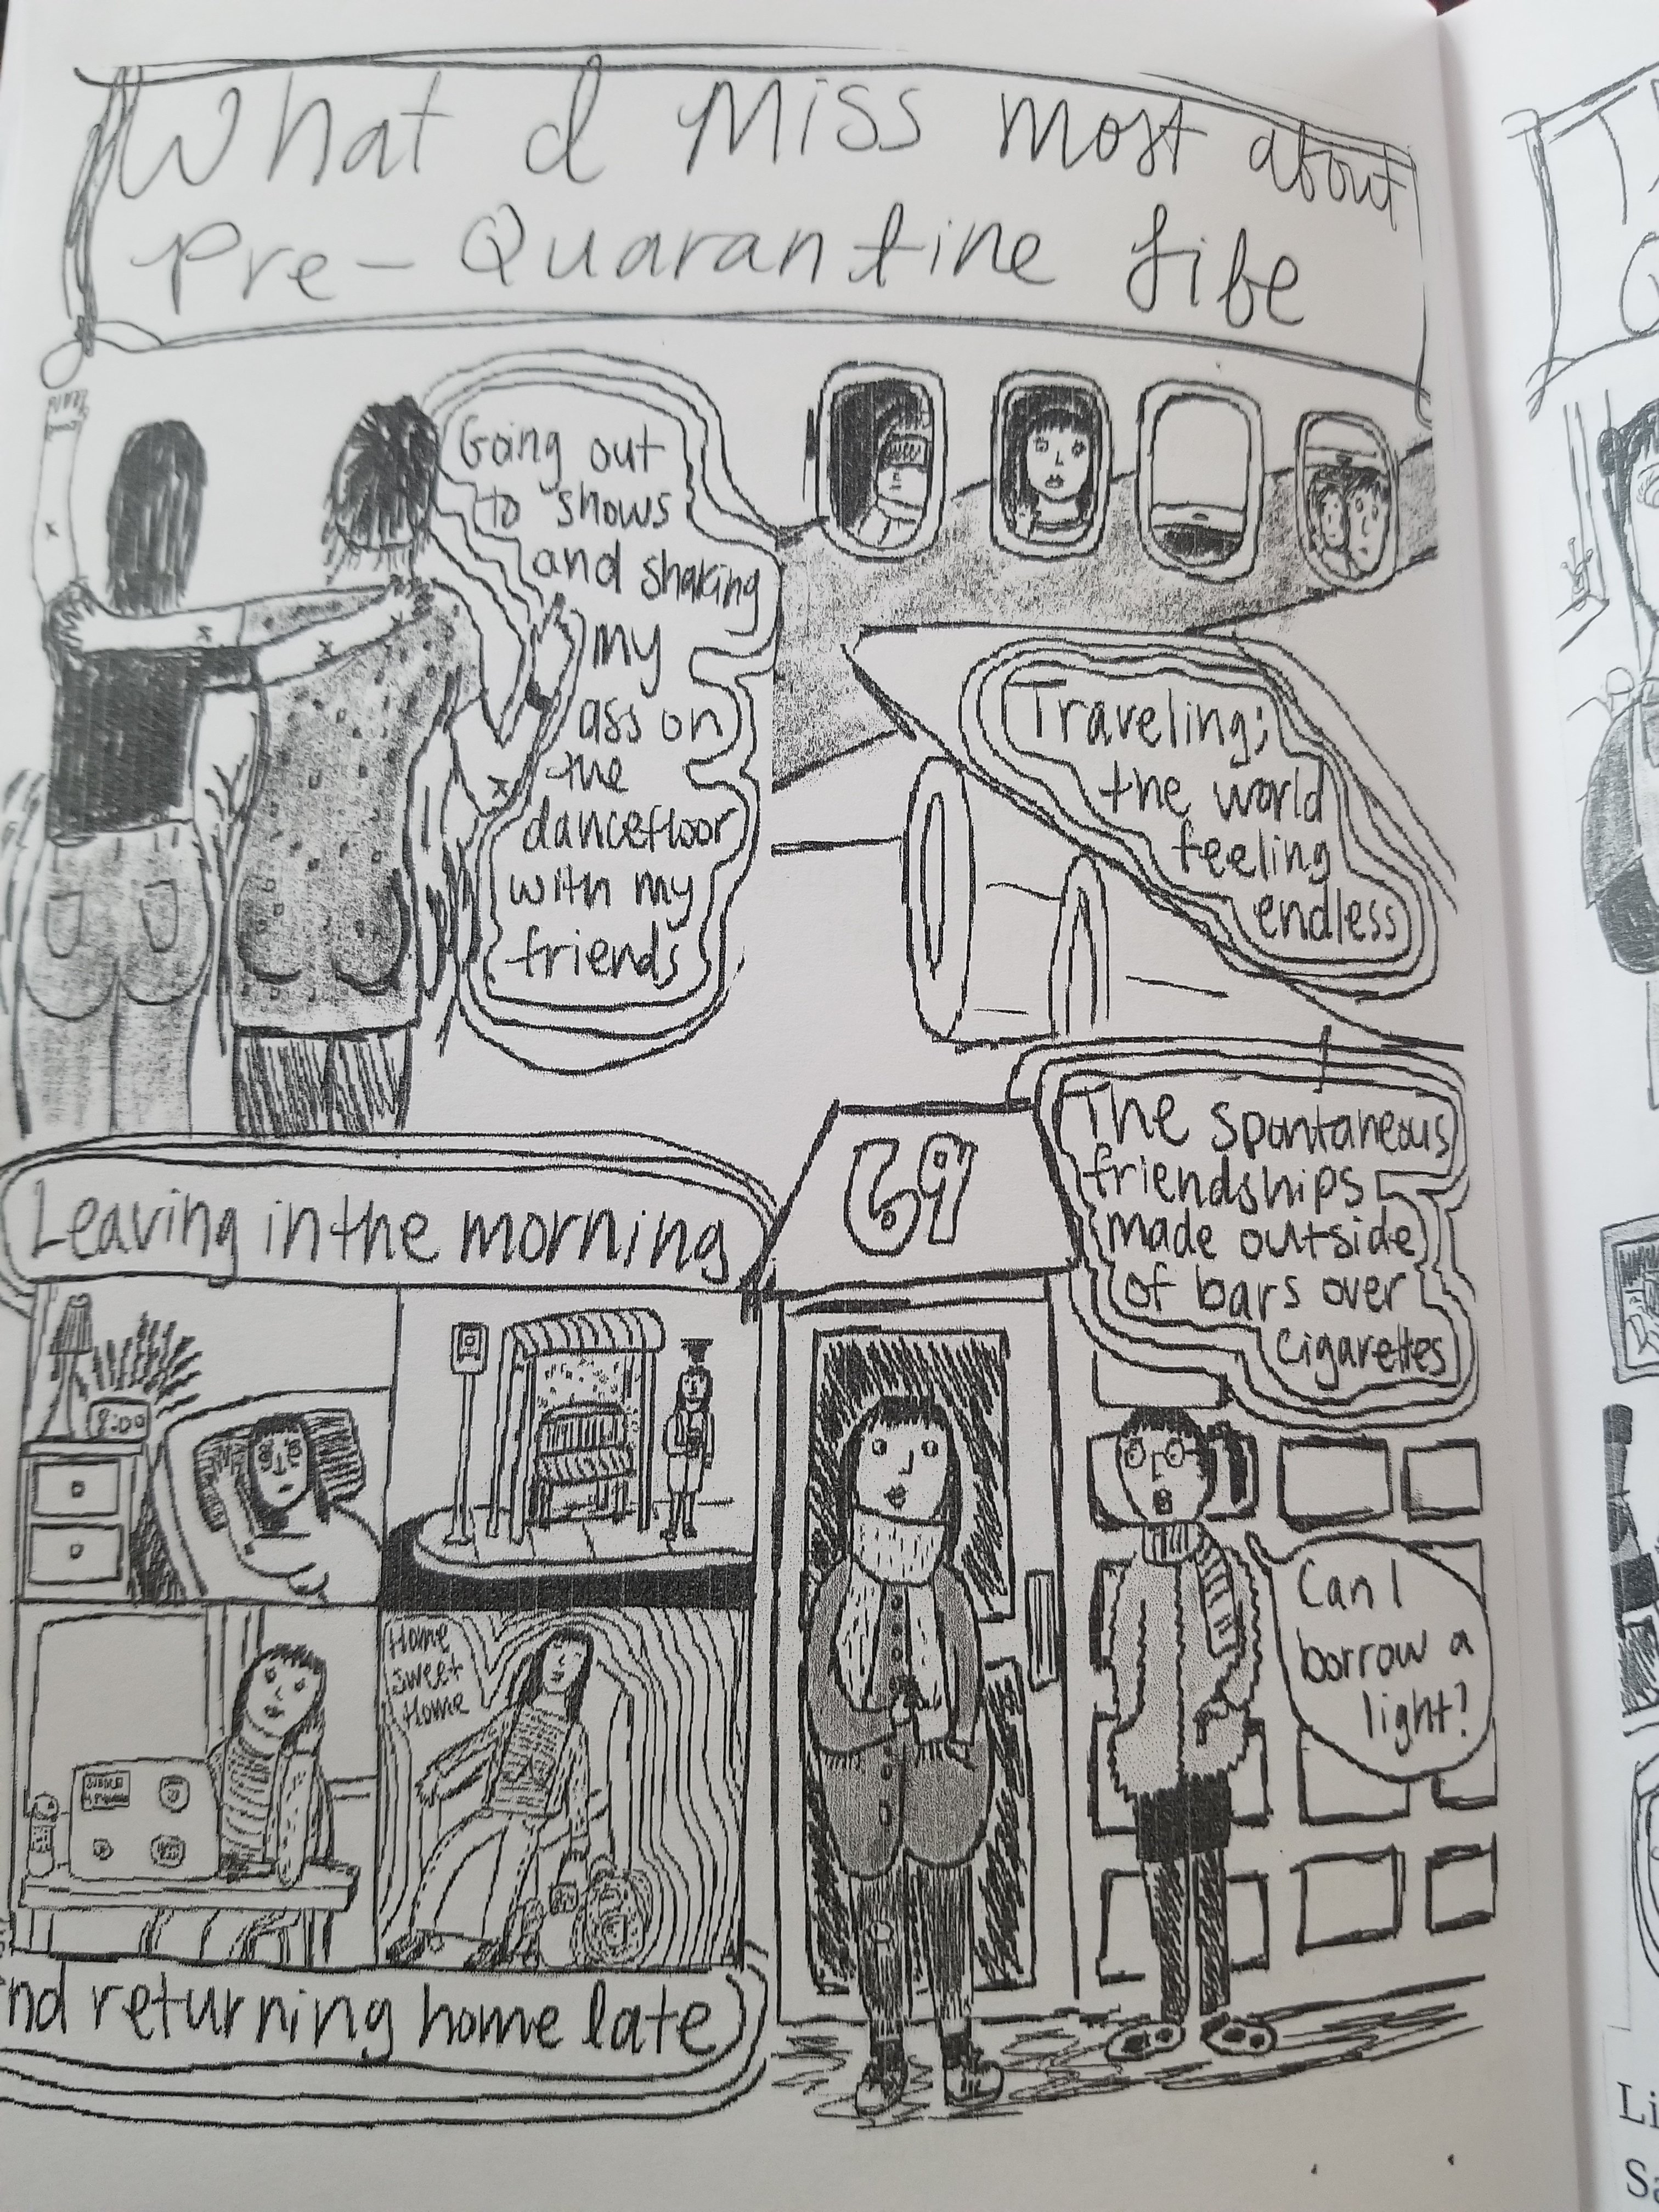 What I Miss most about
Pre-Quarantine Life
Going out
to shows
and shaking
my
ass on
the
dancefloor
with my
friends
Traveling;
the world
feeling
endless
Leaving in the morning
8:00
Home
Sweet
Home
nd returning home late
The spontaneous
friendships
made outside
of bars over
cigarettes
Can I
borrow a
light?
Li
Sa